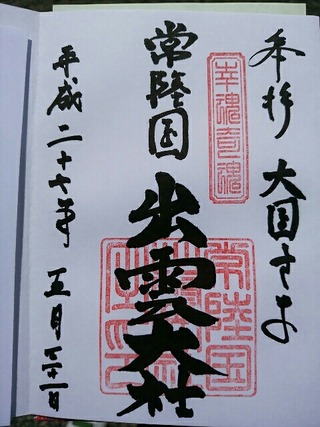 奉拝 大国さま
幸魂奇魂
常陸国
出雲大社
平成二十七年 五月二十一日